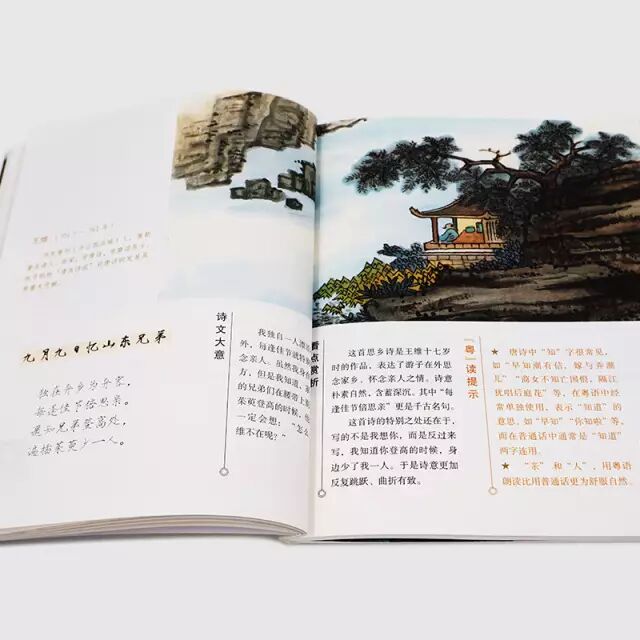 王维
九月九日忆山东兄弟
独在异乡为异客，
每逢佳节倍思亲。
遥知兄弟登高处，
遍插茱萸少一人。
诗文大意
我独自一人漂
外，每逢佳节就特
念亲人。虽然我身
方，但是我知道，
的兄弟们在腰带上
茱萸登高的时候，
一定会想：“怎么
维不在呢？”
看点赏析
这首思乡诗是王维十七岁
时的作品，表达了游子在外思
念家乡、怀念亲人之情。诗意
朴素自然，含蓄深沉。其中“每
逢佳节倍思亲”更是千古名句。
这首诗的特别之处还在于，
写的不是我想你，而是反过来
写，我知道你登高的时候，身
边少了我一人。于是诗意更加
反复跳跃、曲折有致。
「粤」读提示
★ 唐诗中“知”字很常见，
如“早知潮有信，嫁与弄潮
儿”“商女不知亡国恨，隔江
犹唱后庭花”等，在粤语中经
常单独使用，表示“知道”的
意思，如“早知”“你知啦”等，
而在普通话中通常是“知道”
两字连用。
★ “亲”和“人”，用粤语
朗读比用普通话更为舒服自然。